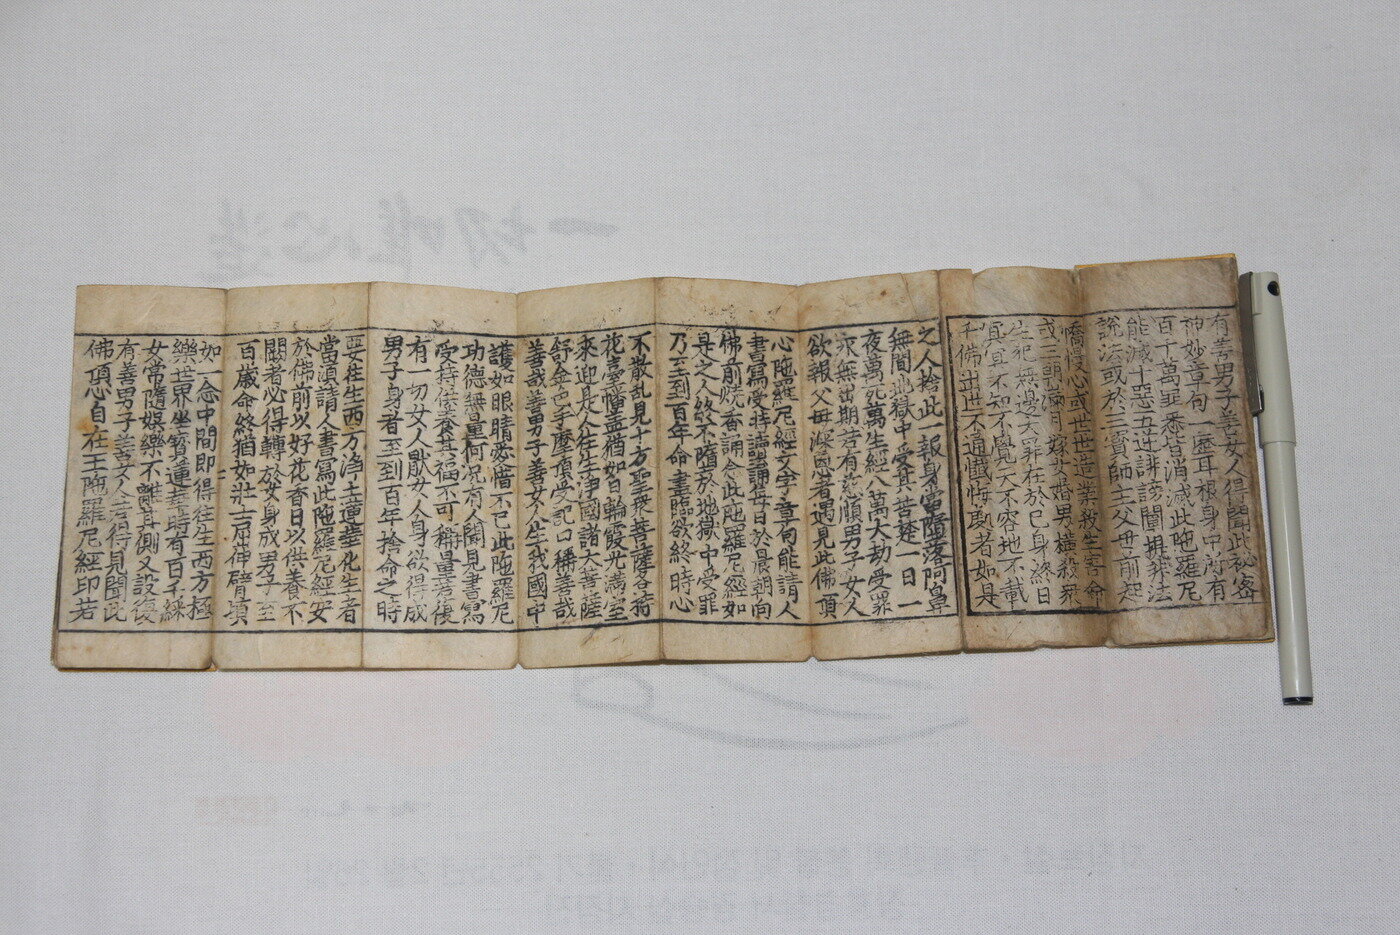 有善男子善女人得聞此秘密
神妙章句一歷耳根身中所有
百千萬罪悉皆消滅此陁羅尼
能滅十惡五逆誹謗闡提非法
說法或於三寶師主父母前起
憍慢心或世世造業殺生害命
或三朝滿月嫁女婚男橫殺衆
生犯無邊大罪在於己身終日
冥冥不知不覺天不容地不載
千佛出世不通懺悔 者如是
之人捨此一報身當墮落阿鼻
無間地獄中受其苦楚一日一
夜萬死萬生經八萬大劫受罪
永無出期若有慈順男子女人
欲報父母深恩者遇見此佛頂
心陁羅尼經文字章句能請人
書寫受持讀誦每日於晨朝向
佛前燒香誦念此陁羅尼經如
是之人終不墮於地獄中受罪
乃至到百年命盡臨欲終時心
不散乱見十方聖衆菩薩各持
花臺幢盖猶如日輪霞光滿室
來迎是人往生淨國諸大菩薩
舒金色手摩頂受記口稱善哉
善哉善男子善女人生我國中
護如眼睛愛惜不已此陁羅尼
功德無量何况有人聞見書寫
受持供養其福不可稱量若復
有一切女人猒女人身欲得成
男子身者至到百年捨命之時
要往生西方浄土蓮華化生者
當須請人書寫此陁羅尼經安
於佛前以好花香日以供養不
闕者必得轉於女身成男子至
百歲命終猶如壯士屈伸臂頃
如一念中間即得往生西方極
樂世界坐寶蓮華時有百千婇
女常隨娛樂不離其側又設復
有善男子善女人 得見聞此
佛頂心自在王陁羅尼經印若